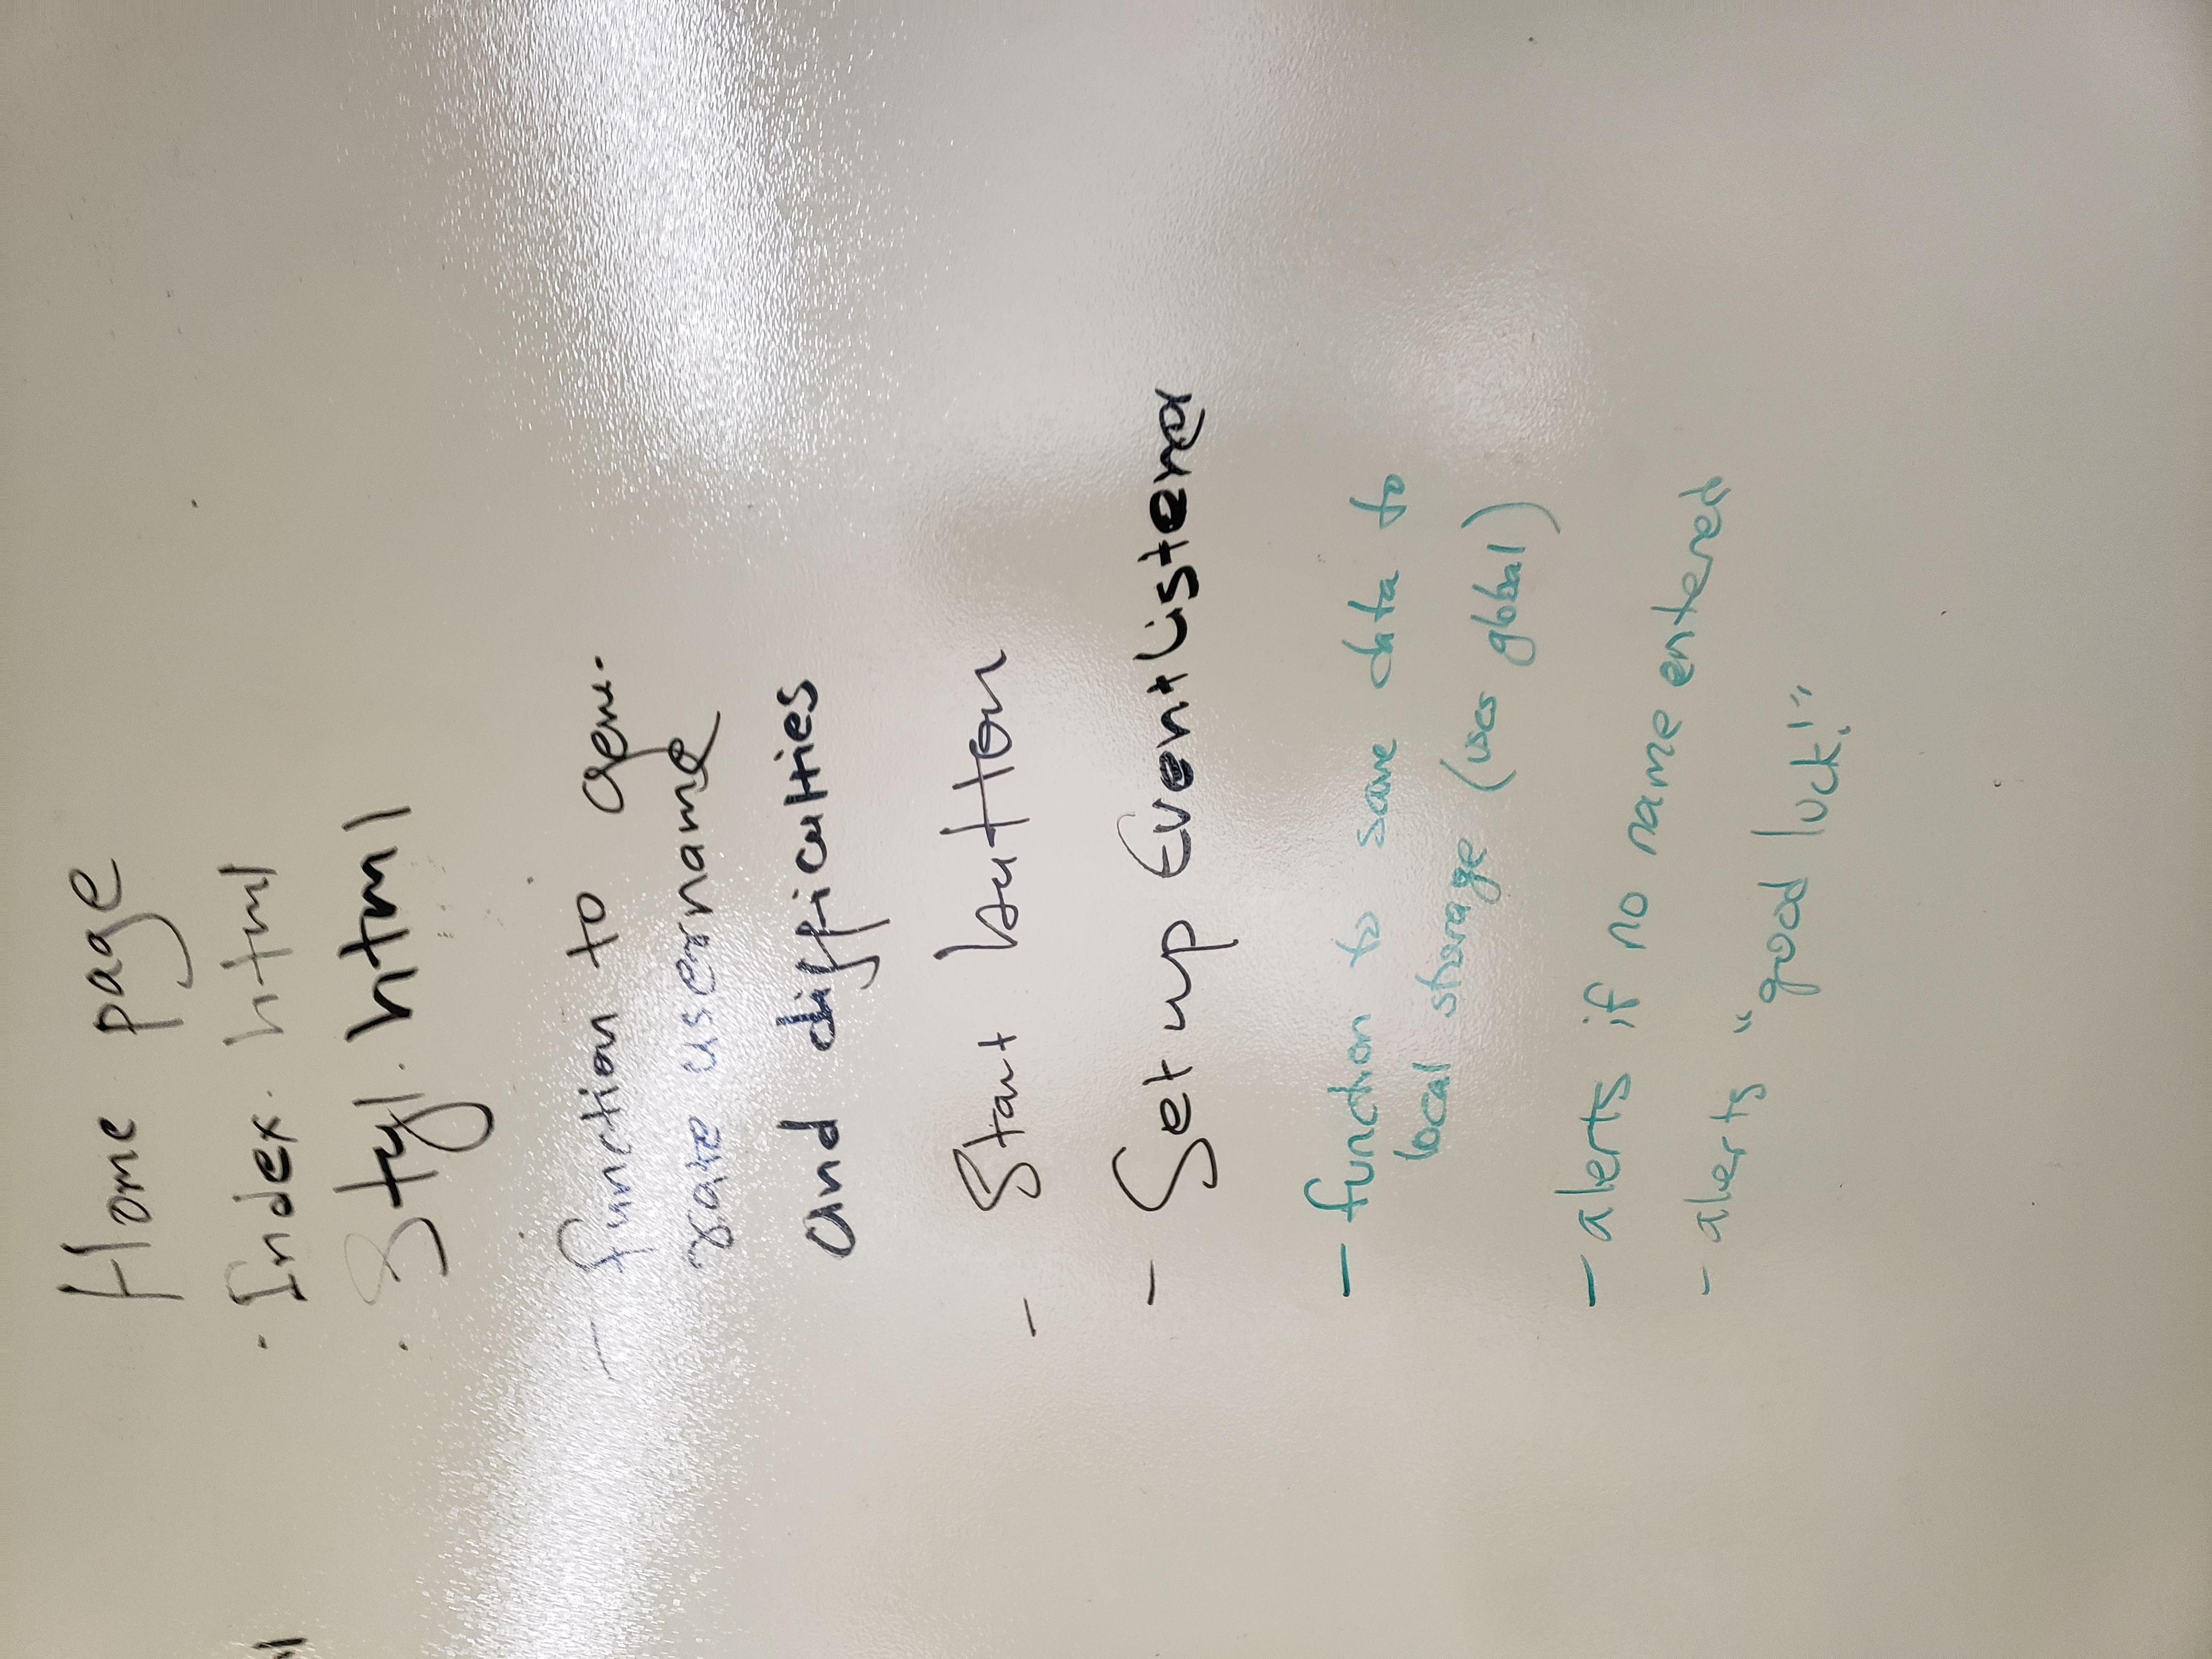 Home page
· Index. html
· Styl. html
- function to gene-
rate username
and difficulties
- Start button
- Set up EventListener
- function to save data to
local storage (uses global)
- alerts if no name entered
- alerts "good luck!"